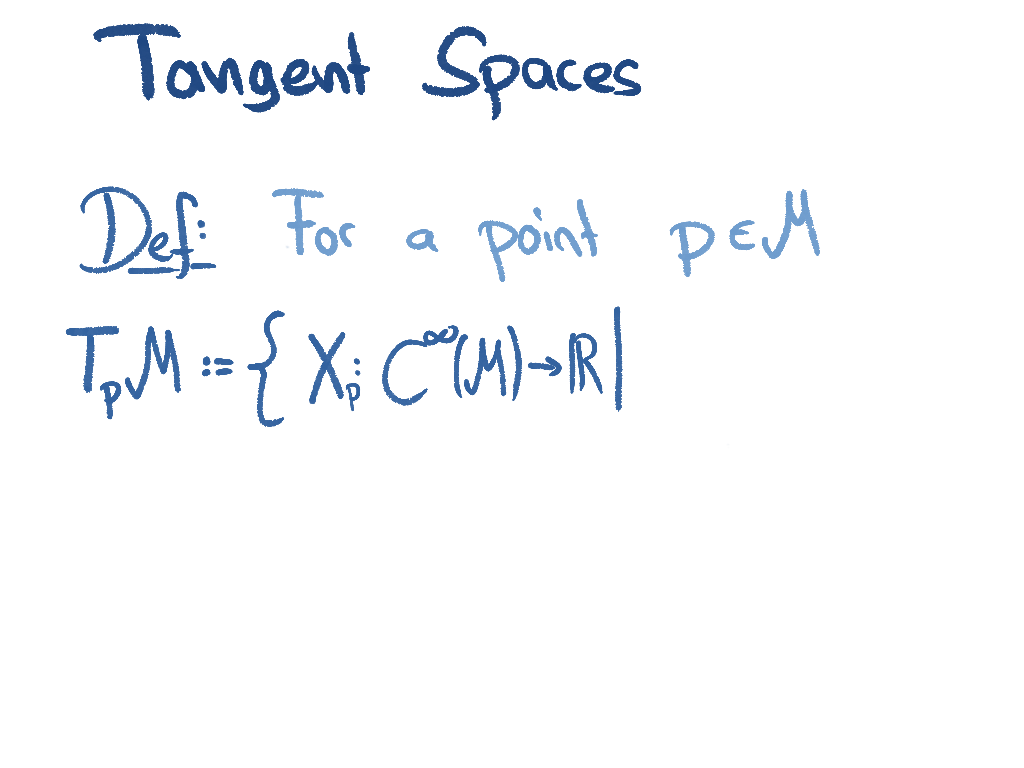 Tangent Spaces
Def: For a point p ∈ M
TₚM := { Xₚ: C^∞(M) → ℝ |